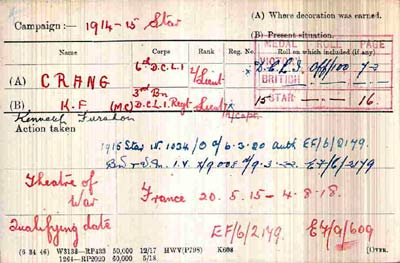 Campaign :— 1914-15 Star
(A) Where decoration was earned.
(B) Present situation.
Name Corps Rank Reg. No. Roll on which included (if any)
MEDAL ROLL PAGE
(A) CRANG 6th D.C.L.I. 2/Lieut VICTORY D.C.L.I. Off/100 7
BRITISH
(B) K.F (MC) 3rd Bn D.C.L.I. Regt Lieut 15 STAR 16.
Kenneth T/Capt.
Action taken
1915 Star IV 1034/O d/ 6.3.20 auth EF/6/2179.
I.V EF/6/2179
Theatre of War France 20.5.15 – 4.8.18.
Qualifying date EF/6/2179. E4/9/609
(6 34 46) W3133—RP433 50,000 12/17 HWV(P798) K608 [OVER.
1264—RP2020 60,000 5/18.